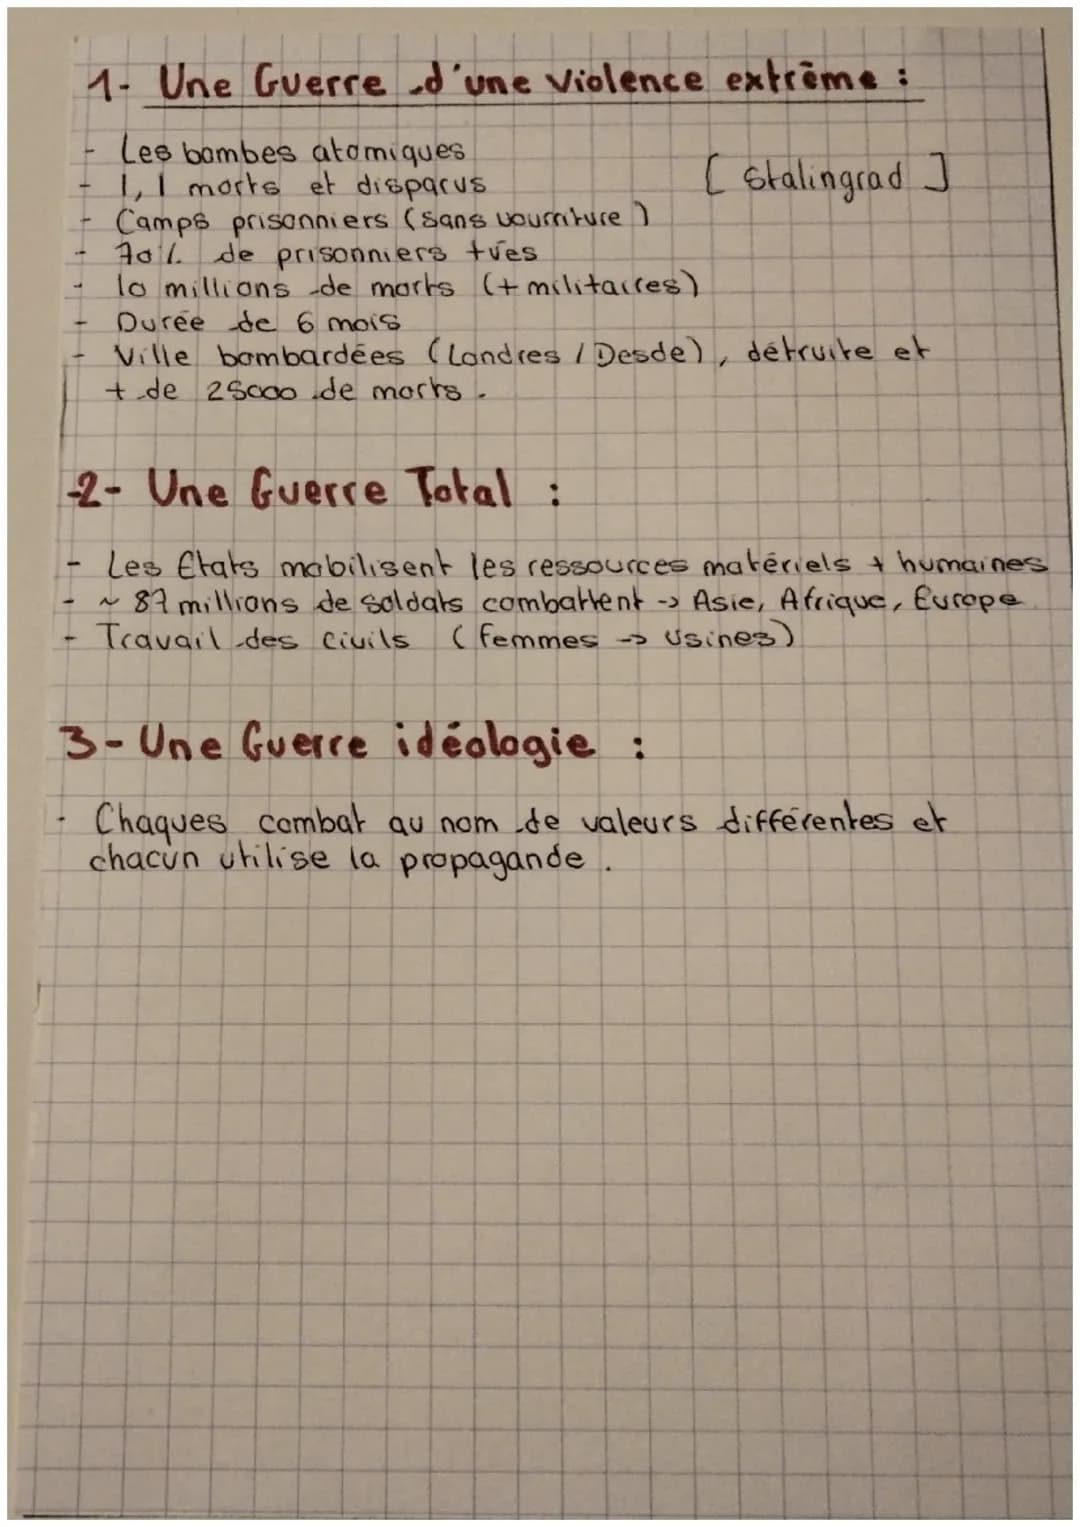 1- Une Guerre d'une violence extrême :
- Les bombes atomiques
- 1,1 morts et disparus [ Stalingrad ]
- Camps prisonniers (sans vourriture)
- 70% de prisonniers tués
- 10 millions de morts (+ militaires)
- Durée de 6 mois
- Ville bombardées (Londres / Desde), détruite et
+ de 25000 de morts.
-2- Une Guerre Total :
- Les Etats mobilisent les ressources matériels + humaines
- ~ 87 millions de soldats combattent -> Asie, Afrique, Europe
- Travail des civils (femmes -> usines)
3- Une Guerre idéologie :
- Chaques combat au nom de valeurs différentes et
chacun utilise la propagande.